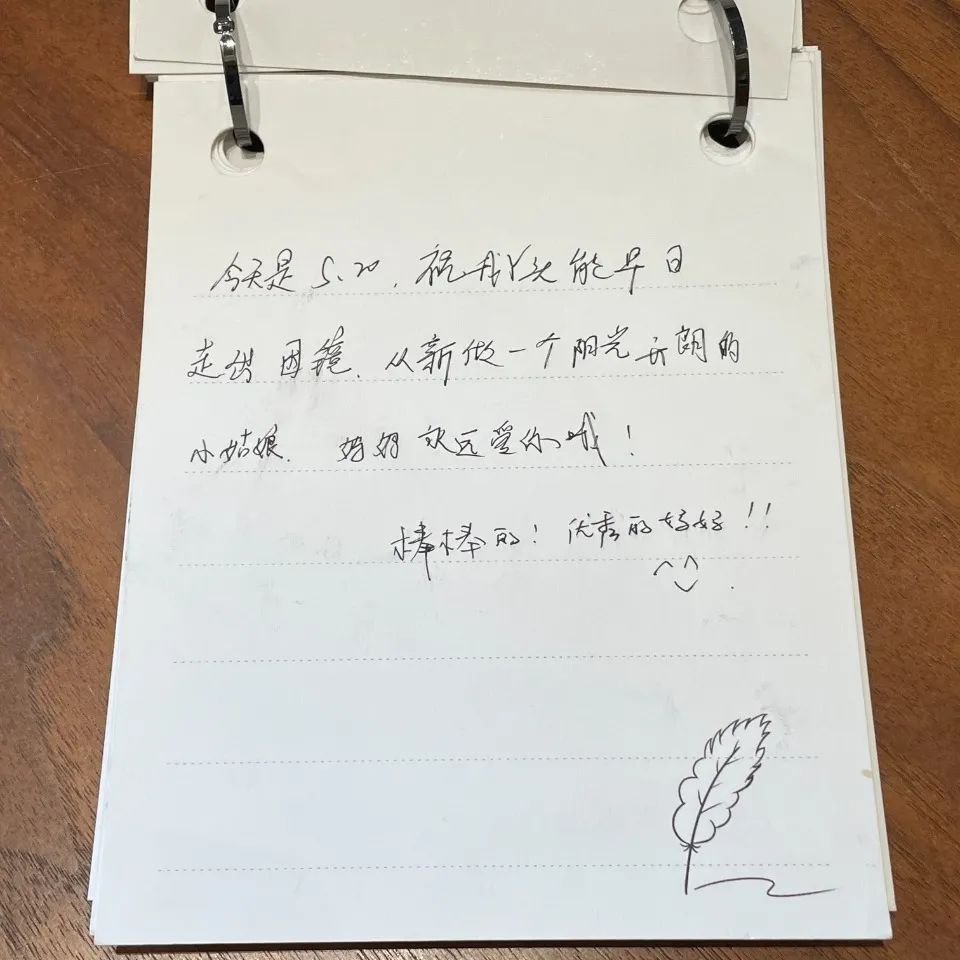 今天是5.20,祝我丫头能早日
走出困镜,从新做一个阳光开朗的
小姑娘. 妈妈永远爱你哦!
棒棒的!优秀的好好!!